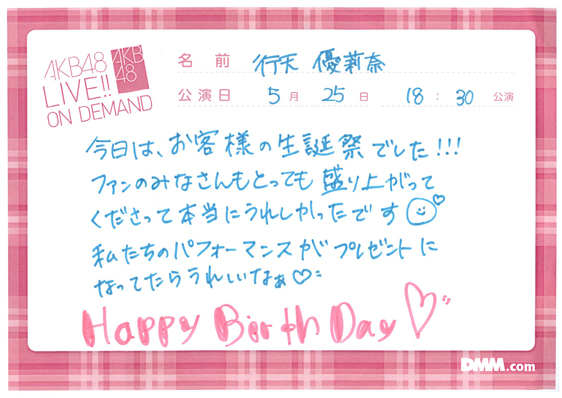 AKB48
LIVE!!
ON DEMAND
AKB
48
名 前 行天 優莉奈
公演日 5月 25日 18:30 公演
今日は、お客様の生誕祭でした!!!
ファンのみなさんもとっても盛り上がって
くださって本当にうれしかったです
私たちのパフォーマンスがプレゼントに
なってたらうれしいなぁ♡
Happy Birth Day♡
DMM.com